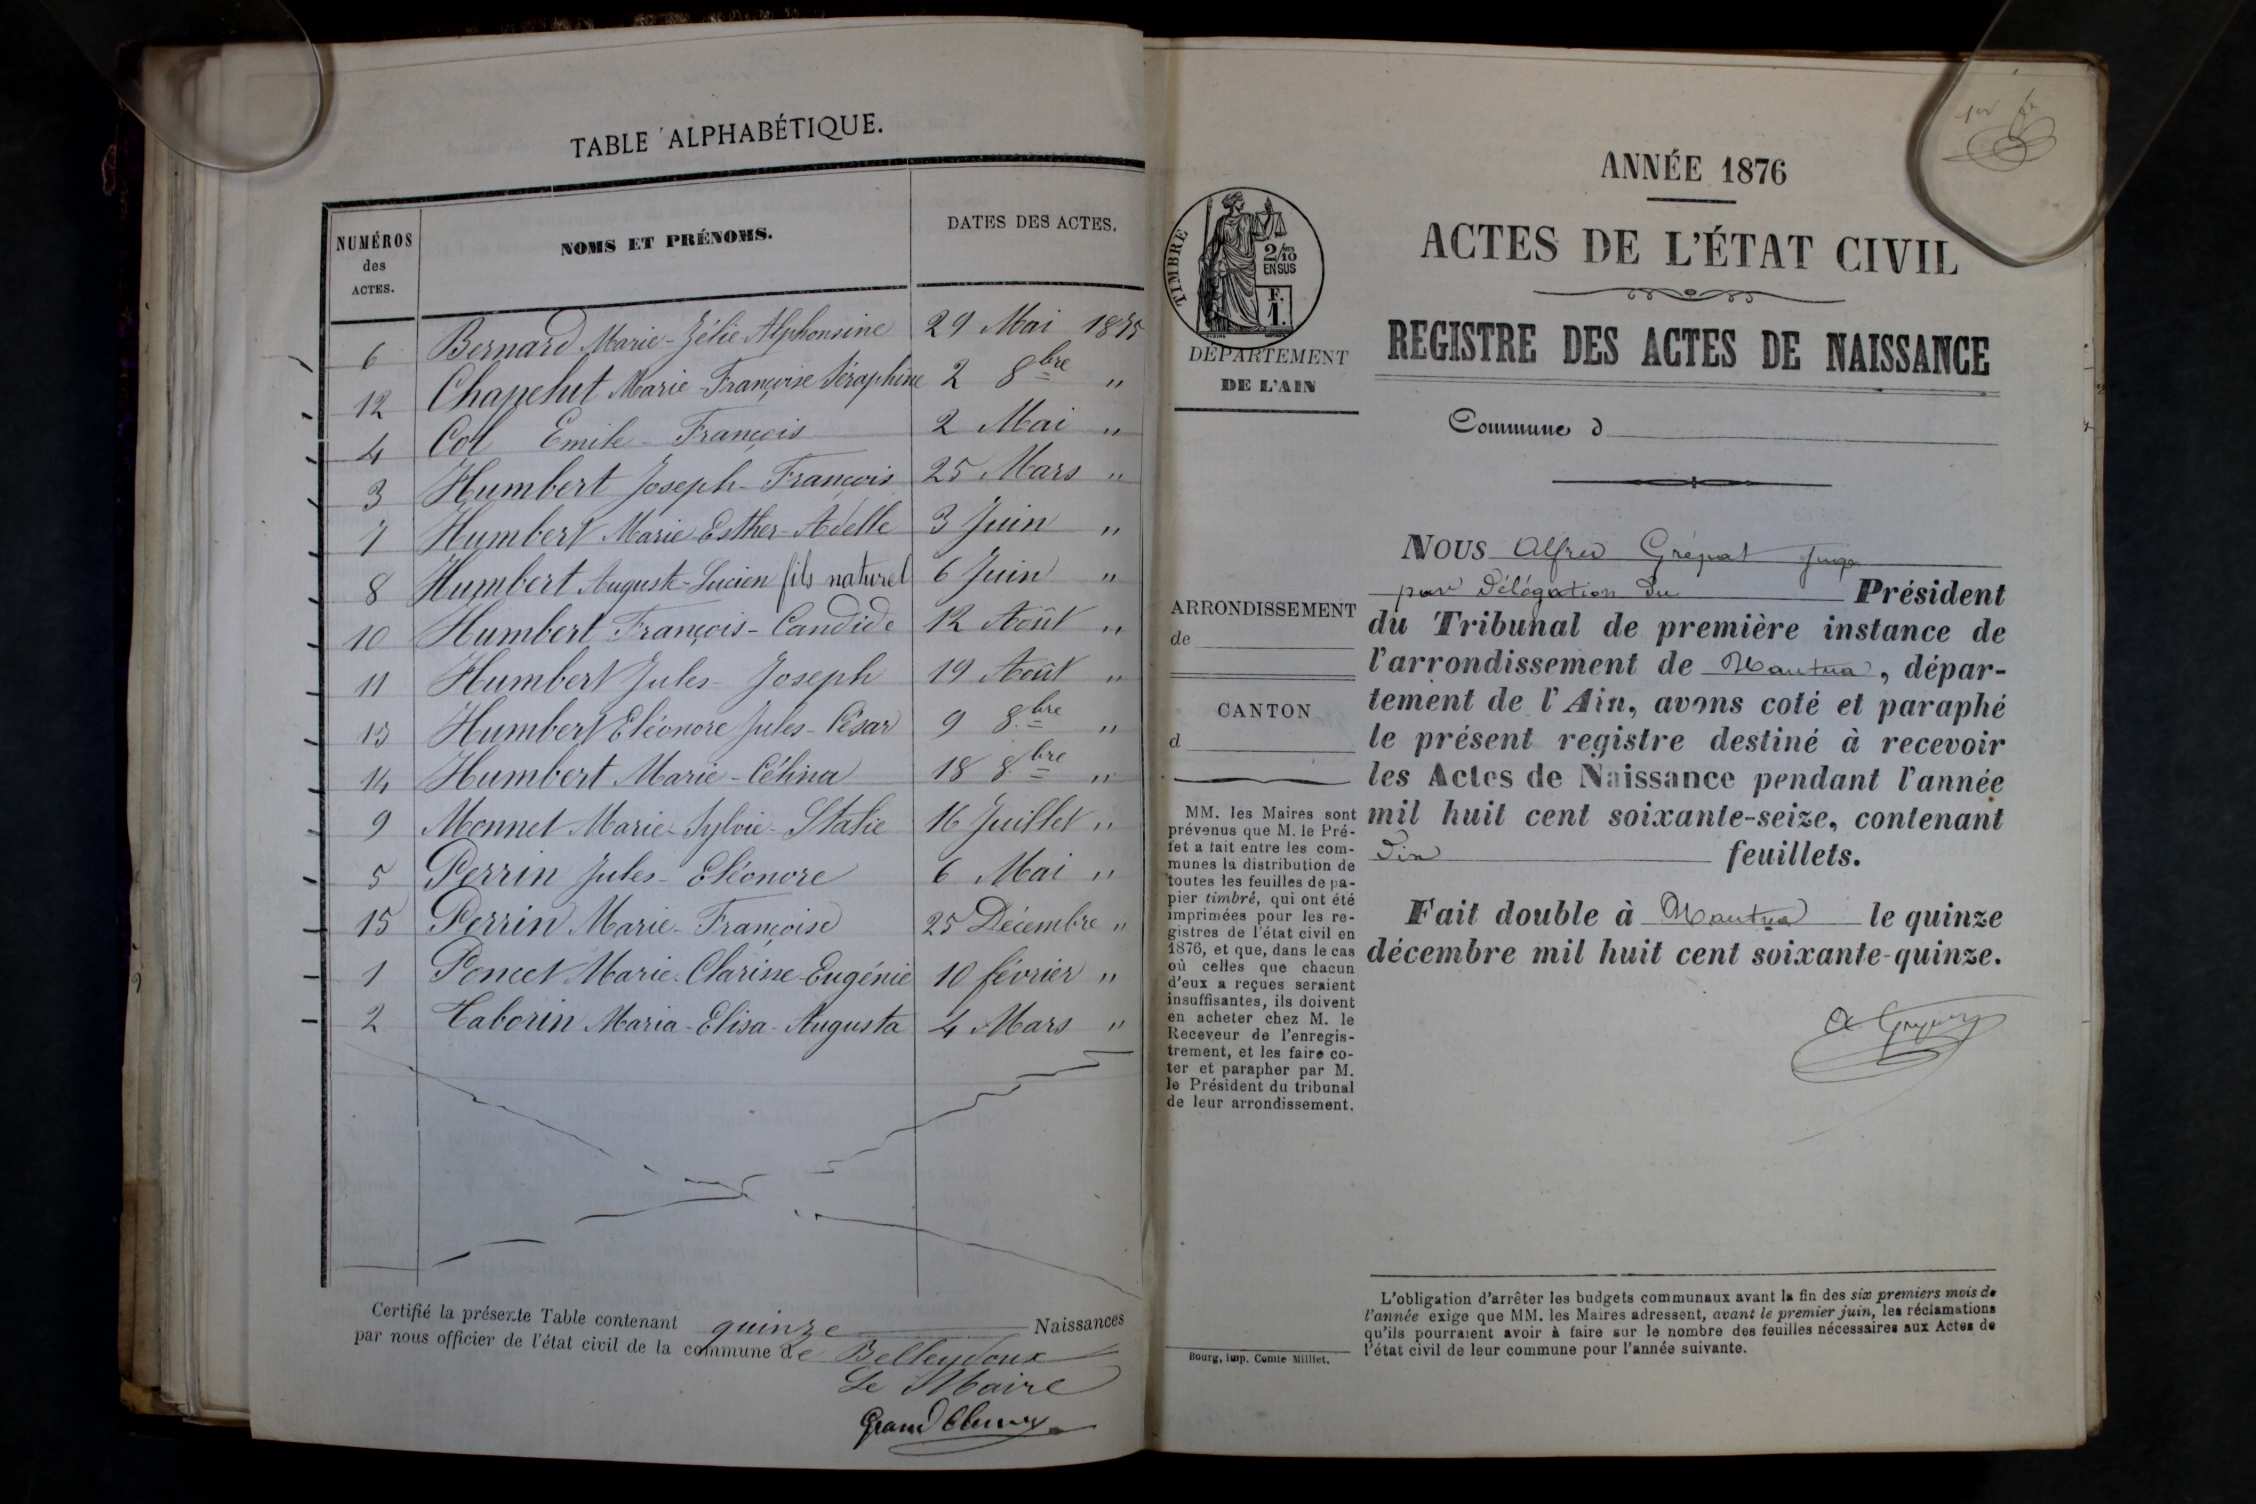 TABLE ALPHABÉTIQUE.
NUMÉROS
des
ACTES.
NOMS ET PRÉNOMS.
DATES DES ACTES.
6 Bernard Marie-Zélie Alphonsine 29 Mai 1875
12 Chapelut Marie-Françoise Séraphine 2 8bre "
4 Col Emile-François 2 Mai "
3 Humbert Joseph-François 25 Mars "
7 Humbert Marie-Esther-Adelle 3 Juin "
8 Humbert Auguste-Lucien fils naturel 6 Juin "
10 Humbert François-Candide 12 Août "
11 Humbert Jules-Joseph 19 Août "
13 Humbert Eléonore Jules-César 9 8bre "
14 Humbert Marie-Célina 18 8bre "
9 Monnet Marie-Sylvie-Stalie 16 Juillet "
5 Perrin Jules-Eléonore 6 Mai "
15 Perrin Marie-Françoise 25 Décembre "
1 Poncet Marie-Clarisse-Eugénie 10 février "
2 Taborin Maria-Elisa-Augusta 4 Mars "
Certifié la présente Table contenant quinze Naissances
par nous officier de l'état civil de la commune de Belleydoux
Le Maire
TIMBRE
2/10
EN SUS
F.
1.
DÉPARTEMENT
DE L'AIN
ARRONDISSEMENT
de
CANTON
d
MM. les Maires sont
prévenus que M. le Pré-
fet a fait entre les com-
munes la distribution de
toutes les feuilles de pa-
pier timbré, qui ont été
imprimées pour les re-
gistres de l'état civil en
1876, et que, dans le cas
où celles que chacun
d'eux a reçues seraient
insuffisantes, ils doivent
en acheter chez M. le
Receveur de l'enregis-
trement, et les faire co-
ter et parapher par M.
le Président du tribunal
de leur arrondissement.
Bourg, imp. Comte Milliet.
ANNÉE 1876
ACTES DE L'ÉTAT CIVIL
REGISTRE DES ACTES DE NAISSANCE
Commune d
NOUS Alfred Grépat Juge
par Délégation du Président
du Tribunal de première instance de
l'arrondissement de Nantua, dépar-
tement de l'Ain, avons coté et paraphé
le présent registre destiné à recevoir
les Actes de Naissance pendant l'année
mil huit cent soixante-seize, contenant
Dix feuillets.
Fait double à Nantua le quinze
décembre mil huit cent soixante-quinze.
L'obligation d'arrêter les budgets communaux avant la fin des six premiers mois de
l'année exige que MM. les Maires adressent, avant le premier juin, les réclamations
qu'ils pourraient avoir à faire sur le nombre des feuilles nécessaires aux Actes de
l'état civil de leur commune pour l'année suivante.